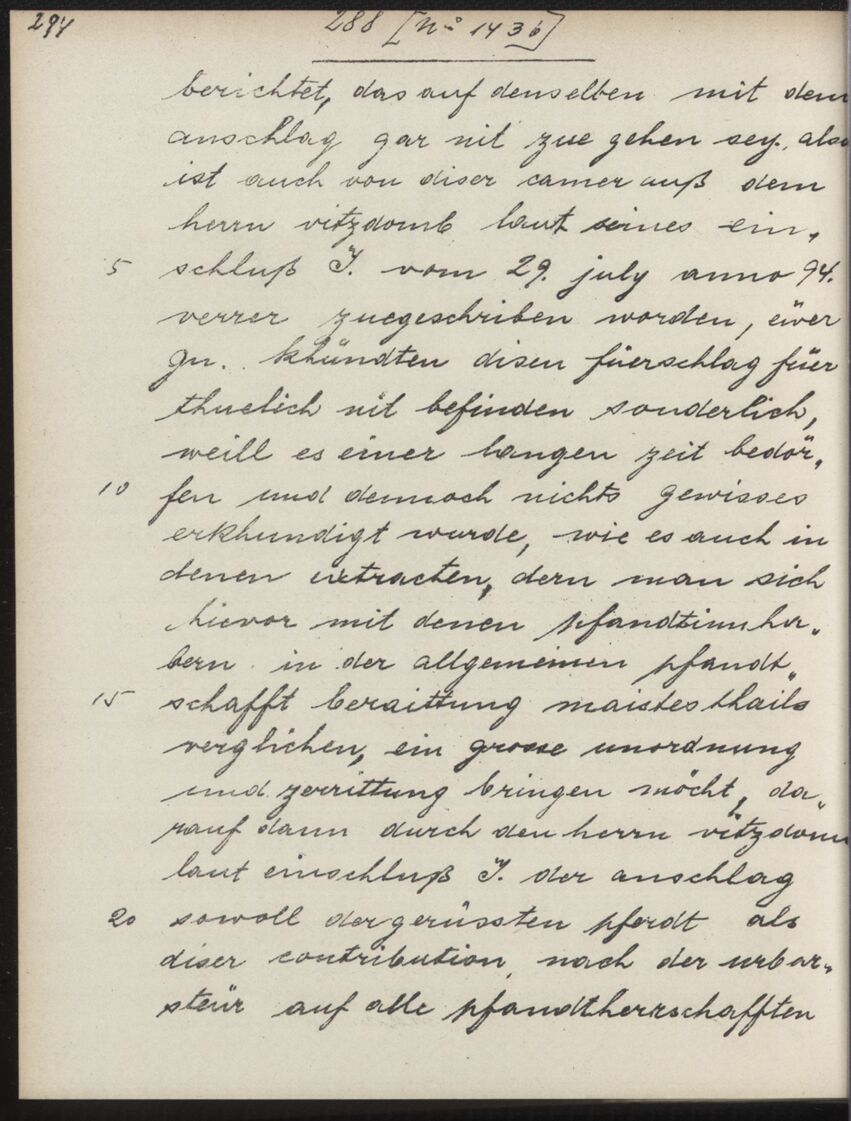 294
288 [No 143b]
berichtet, das auf denselben mit dem
anschlag gar nit zue gehen sey, also
ist auch von diser camer auß dem
herrn vitzdomb laut seines ein„
5 schluß J. vom 29. july anno 94.
verrer zuegeschriben worden, eüer
gn. khündten disen fürerschlag füer
thuelich nit befinden sonderlich,
weill es einer langen zeit bedör„
10 fen und dennoch nichts gewisses
erkhundigt wurde, wie es auch in
denen extracten, dern man sich
hievor mit denen pfandtinnha„
bern in der allgemeinen pfandt„
15 schafft beraittung maistesthails
verglichen, ein grosse unordnung
und zerrittung bringen möcht, da„
rauf dann durch den herrn vitzdom
laut einschluß J. der anschlag
20 sowoll der gerüssten pferdt als
diser contribution nach der urbar„
steür auf alle pfandtherrschafften